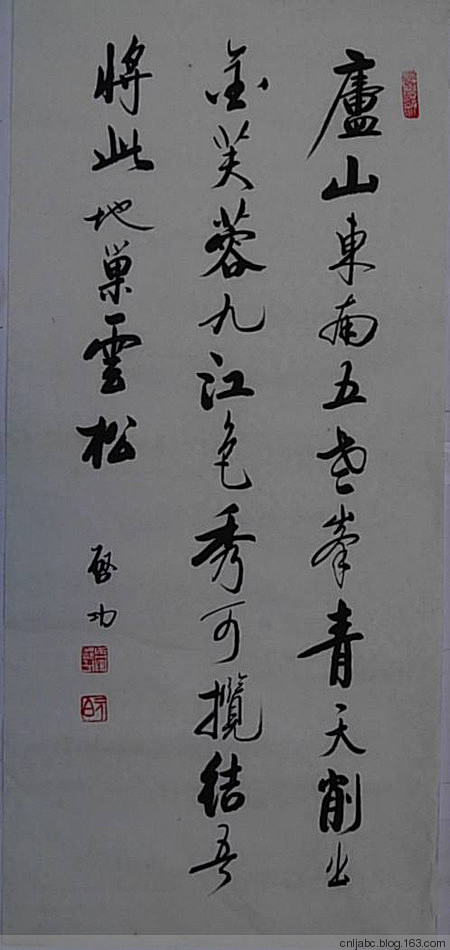 廬山東南五老峯青天削出
金芙蓉九江色秀可攬結吾
將此地巢雲松
啓功
cnljabc.blog.163.com